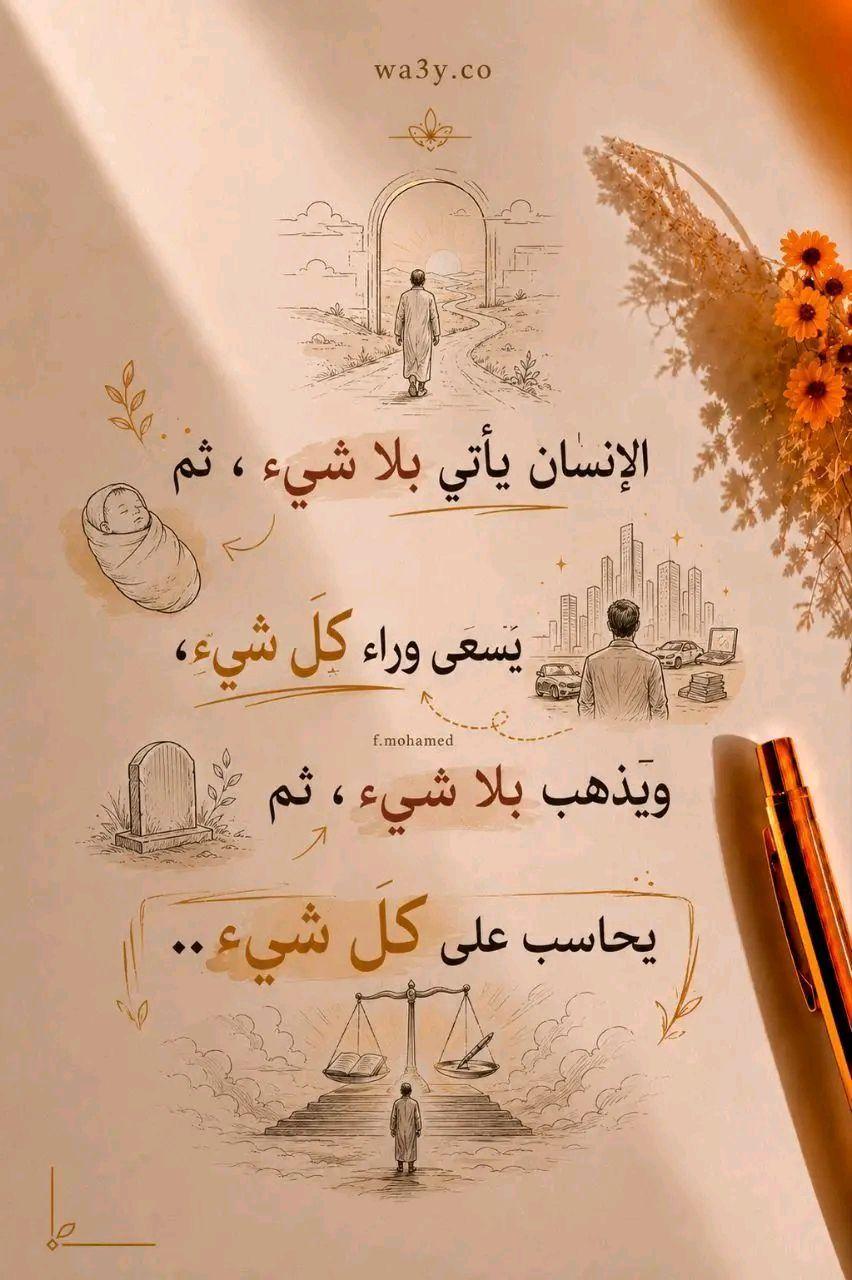 wa3y.co
الإنسٰان يأتي بلا شيء ، ثم
يَسعَى وراء كلَ شيءِ،
f.mohamed
ويَذهب بلا شيء ، ثم
يحاسب على كلَ شيء ..